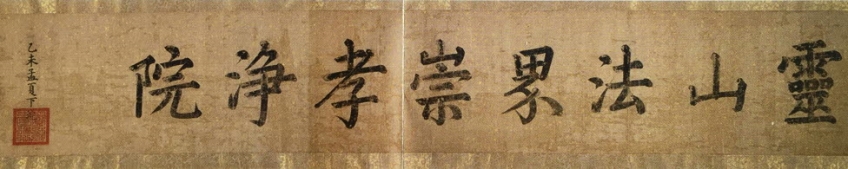 靈山法界崇孝淨院
乙未孟夏下